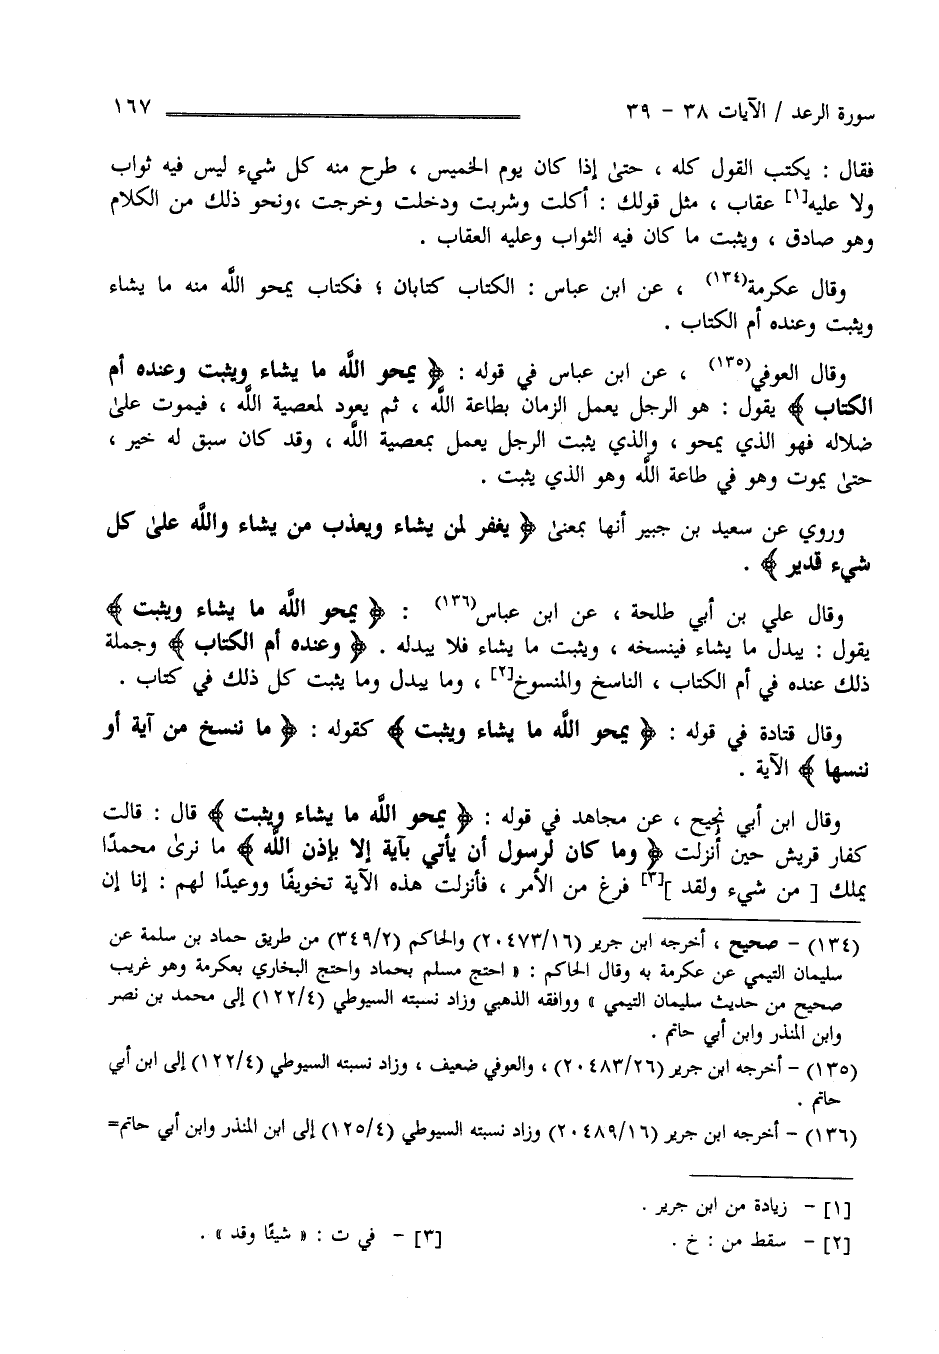 سورة الرعد / الآيات ٣٨ - ٣٩ ١٦٧
فقال : يكتب القول كله ، حتىٰ إذا كان يوم الخميس ، طرح منه كل شيء ليس فيه ثواب
ولا عليه[١] عقاب ، مثل قولك : أكلت وشربت ودخلت وخرجت ،ونحو ذلك من الكلام
وهو صادق ، ويثبت ما كان فيه الثواب وعليه العقاب .
وقال عكرمة(١٣٤) ، عن ابن عباس : الكتاب كتابان ؛ فكتاب يمحو اللَّه منه ما يشاء
ويثبت وعنده أم الكتاب .
وقال العوفي(١٣٥) ، عن ابن عباس في قوله : ﴿ يمحو اللَّه ما يشاء ويثبت وعنده أم
الكتاب ﴾ يقول : هو الرجل يعمل الزمان بطاعة اللَّه ، ثم يعود لمعصية اللَّه ، فيموت علىٰ
ضلاله فهو الذي يمحو ، والذي يثبت الرجل يعمل بمعصية اللَّه ، وقد كان سبق له خير ،
حتىٰ يموت وهو في طاعة اللَّه وهو الذي يثبت .
وروي عن سعيد بن جبير أنها بمعنىٰ ﴿ يغفر لمن يشاء ويعذب من يشاء واللَّه علىٰ كل
شيء قدير ﴾ .
وقال علي بن أبي طلحة ، عن ابن عباس(١٣٦) : ﴿ يمحو اللَّه ما يشاء ويثبت ﴾
يقول : يبدل ما يشاء فينسخه ، ويثبت ما يشاء فلا يبدله . ﴿ وعنده أم الكتاب ﴾ وجملة
ذلك عنده في أم الكتاب ، الناسخ والمنسوخ[٢] ، وما يبدل وما يثبت كل ذلك في كتاب .
وقال قتادة في قوله : ﴿ يمحو اللَّه ما يشاء ويثبت ﴾ كقوله : ﴿ ما ننسخ من آية أو
ننسها ﴾ الآية .
وقال ابن أبي نجيح ، عن مجاهد في قوله : ﴿ يمحو اللَّه ما يشاء ويثبت ﴾ قال : قالت
كفار قريش حين أُنزلت ﴿ وما كان لرسول أن يأتي بآية إلا بإذن اللَّه ﴾ ما نرىٰ محمدًا
يملك [ من شيء ولقد ][٣] فرغ من الأمر ، فأنزلت هذه الآية تخويفًا ووعيدًا لهم : إنا إن
(١٣٤) - صحيح ، أخرجه ابن جرير (٢٠٤٧٣/١٦) والحاكم (٣٤٩/٢) من طريق حماد بن سلمة عن
سليمان التيمي عن عكرمة به وقال الحاكم : « احتج مسلم بحماد واحتج البخاري بعكرمة وهو غريب
صحيح من حديث سليمان التيمي » ووافقه الذهبي وزاد نسبته السيوطي (١٢٢/٤) إلى محمد بن نصر
وابن المنذر وابن أبي حاتم .
(١٣٥) - أخرجه ابن جرير (٢٠٤٨٣/٢٦) ، والعوفي ضعيف ، وزاد نسبته السيوطي (١٢٢/٤) إلى ابن أبي
حاتم .
(١٣٦) - أخرجه ابن جرير (٢٠٤٨٩/١٦) وزاد نسبته السيوطي (١٢٥/٤) إلى ابن المنذر وابن أبي حاتم=
[١] - زيادة من ابن جرير .
[٢] - سقط من : خ .
[٣] - في ت : « شيئًا وقد » .